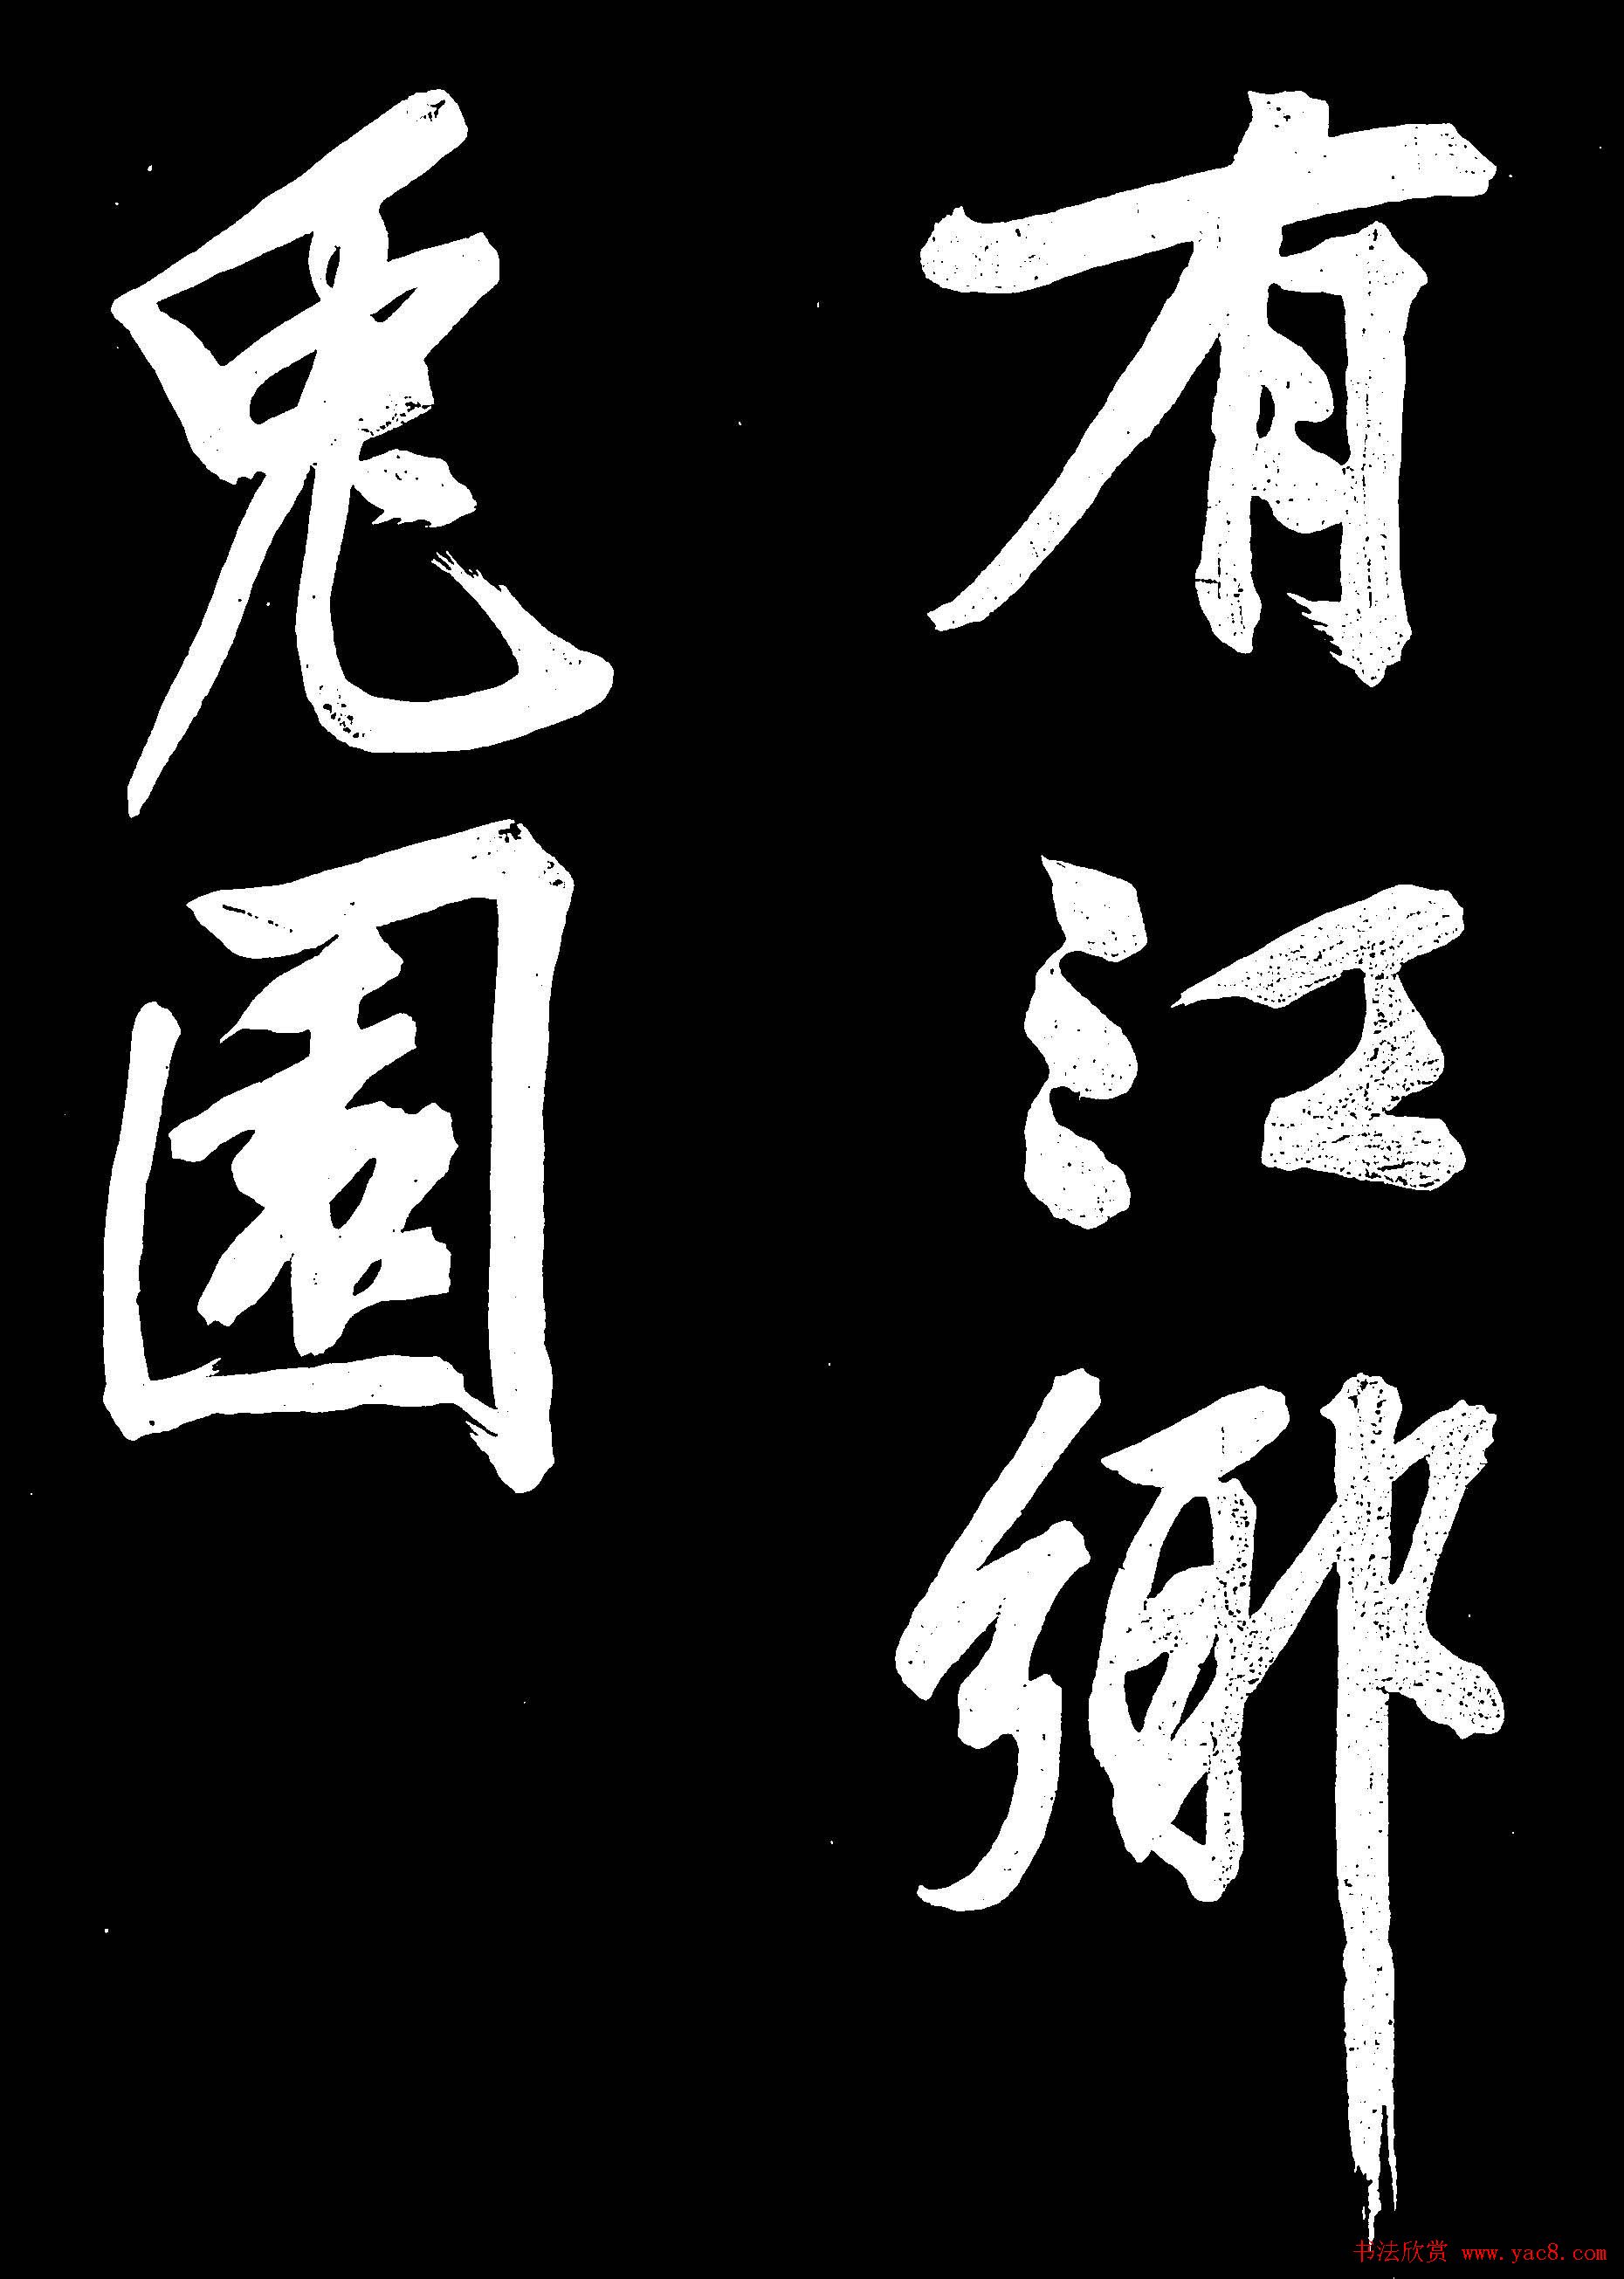 有江鄉
兎園
书法欣赏 www.yac8.com